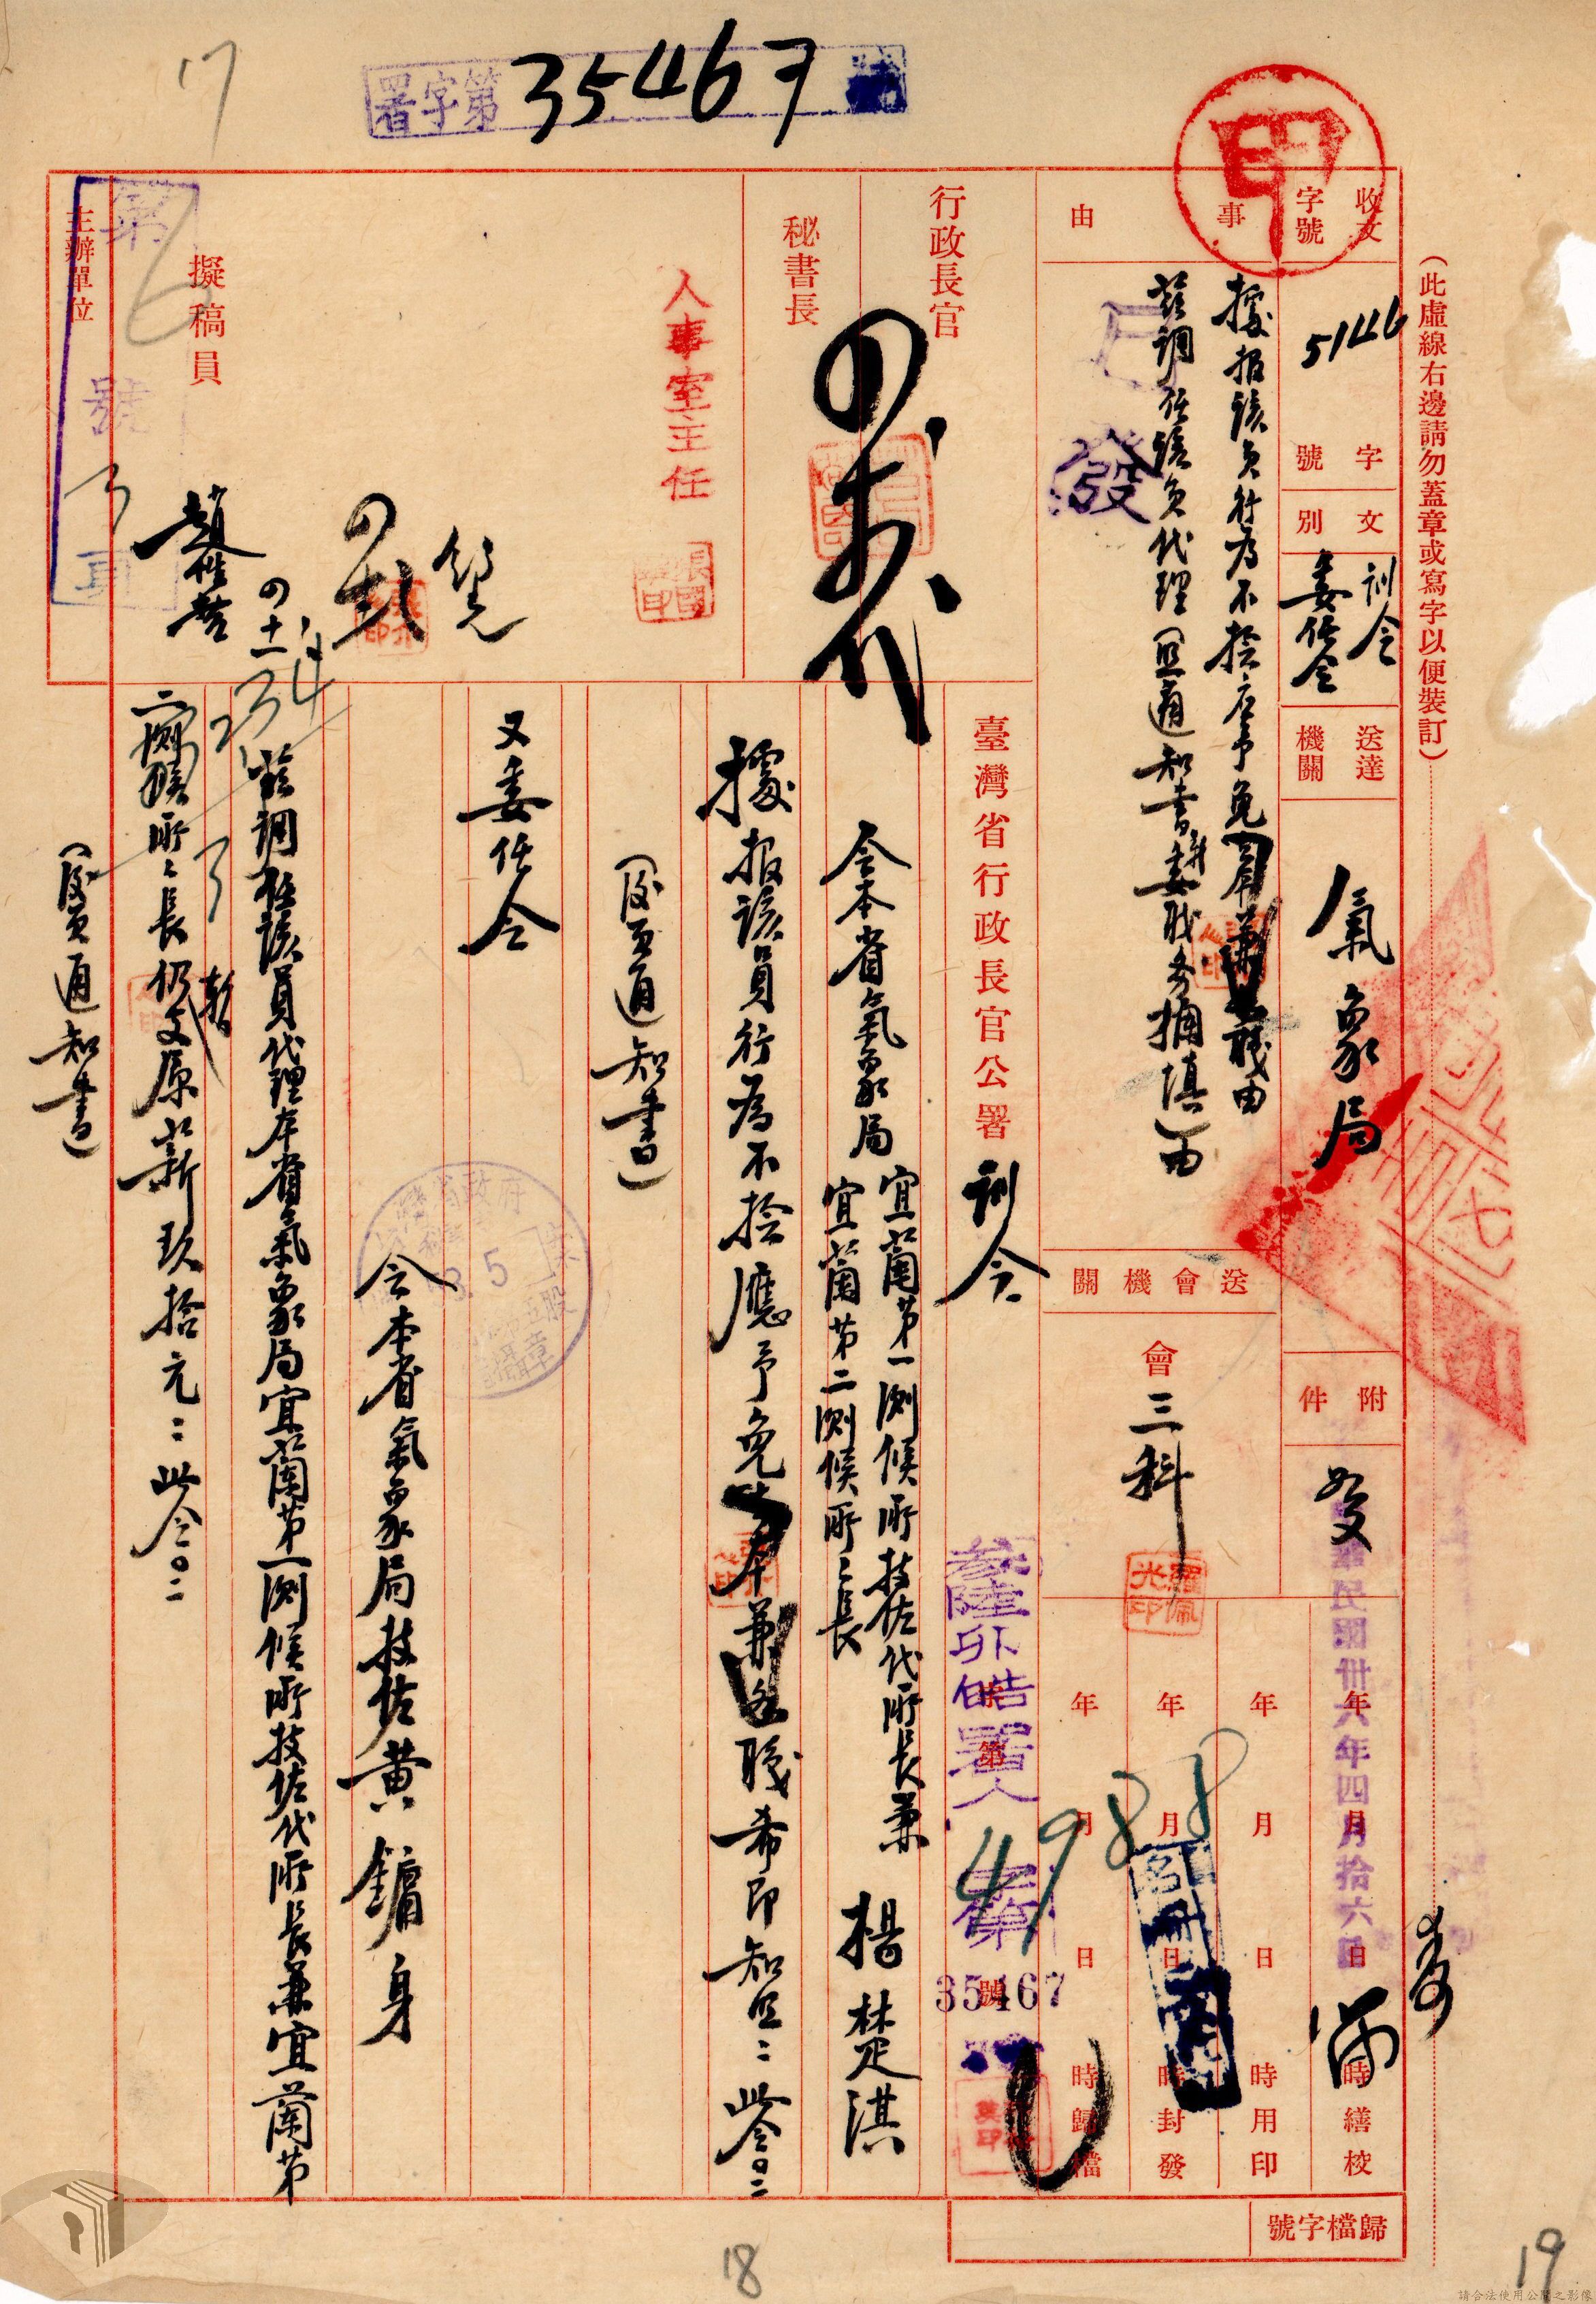 17
署字第 35467 號
印
（此虛線右邊請勿蓋章或寫字以便裝訂）
收文字號
5146
字號
文別
訓令
委任令
送達機關
氣象局
附件
中華民國卅六年四月拾六日
年 月 日 時繕校
年 月 日 時用印
年 月 日 時封發
年 月 日 時歸檔
事由
據報該員行為不檢應予免職由
茲調任該員代理
發
送會機關
會三科
行政長官
秘書長
人事室主任
擬稿員
主辦單位
第 號
臺灣省行政長官公署訓令
署人
第 號
4988
35467
令本省氣象局
宜蘭第一測候所技佐代所長兼
宜蘭第二測候所所長
楊楚淇
據報該員行為不檢應予免本兼各職希即知照：此令。
（附頁通知書）
又委任令
令本省氣象局技佐黃鏞身
茲調任該員代理本省氣象局宜蘭第一測候所技佐代所長兼宜蘭第
二測候所所長仍支原薪玖拾元：此令。
（頁通知書）
四十一
234
歸檔字號
18
19
請合法使用公開之影像